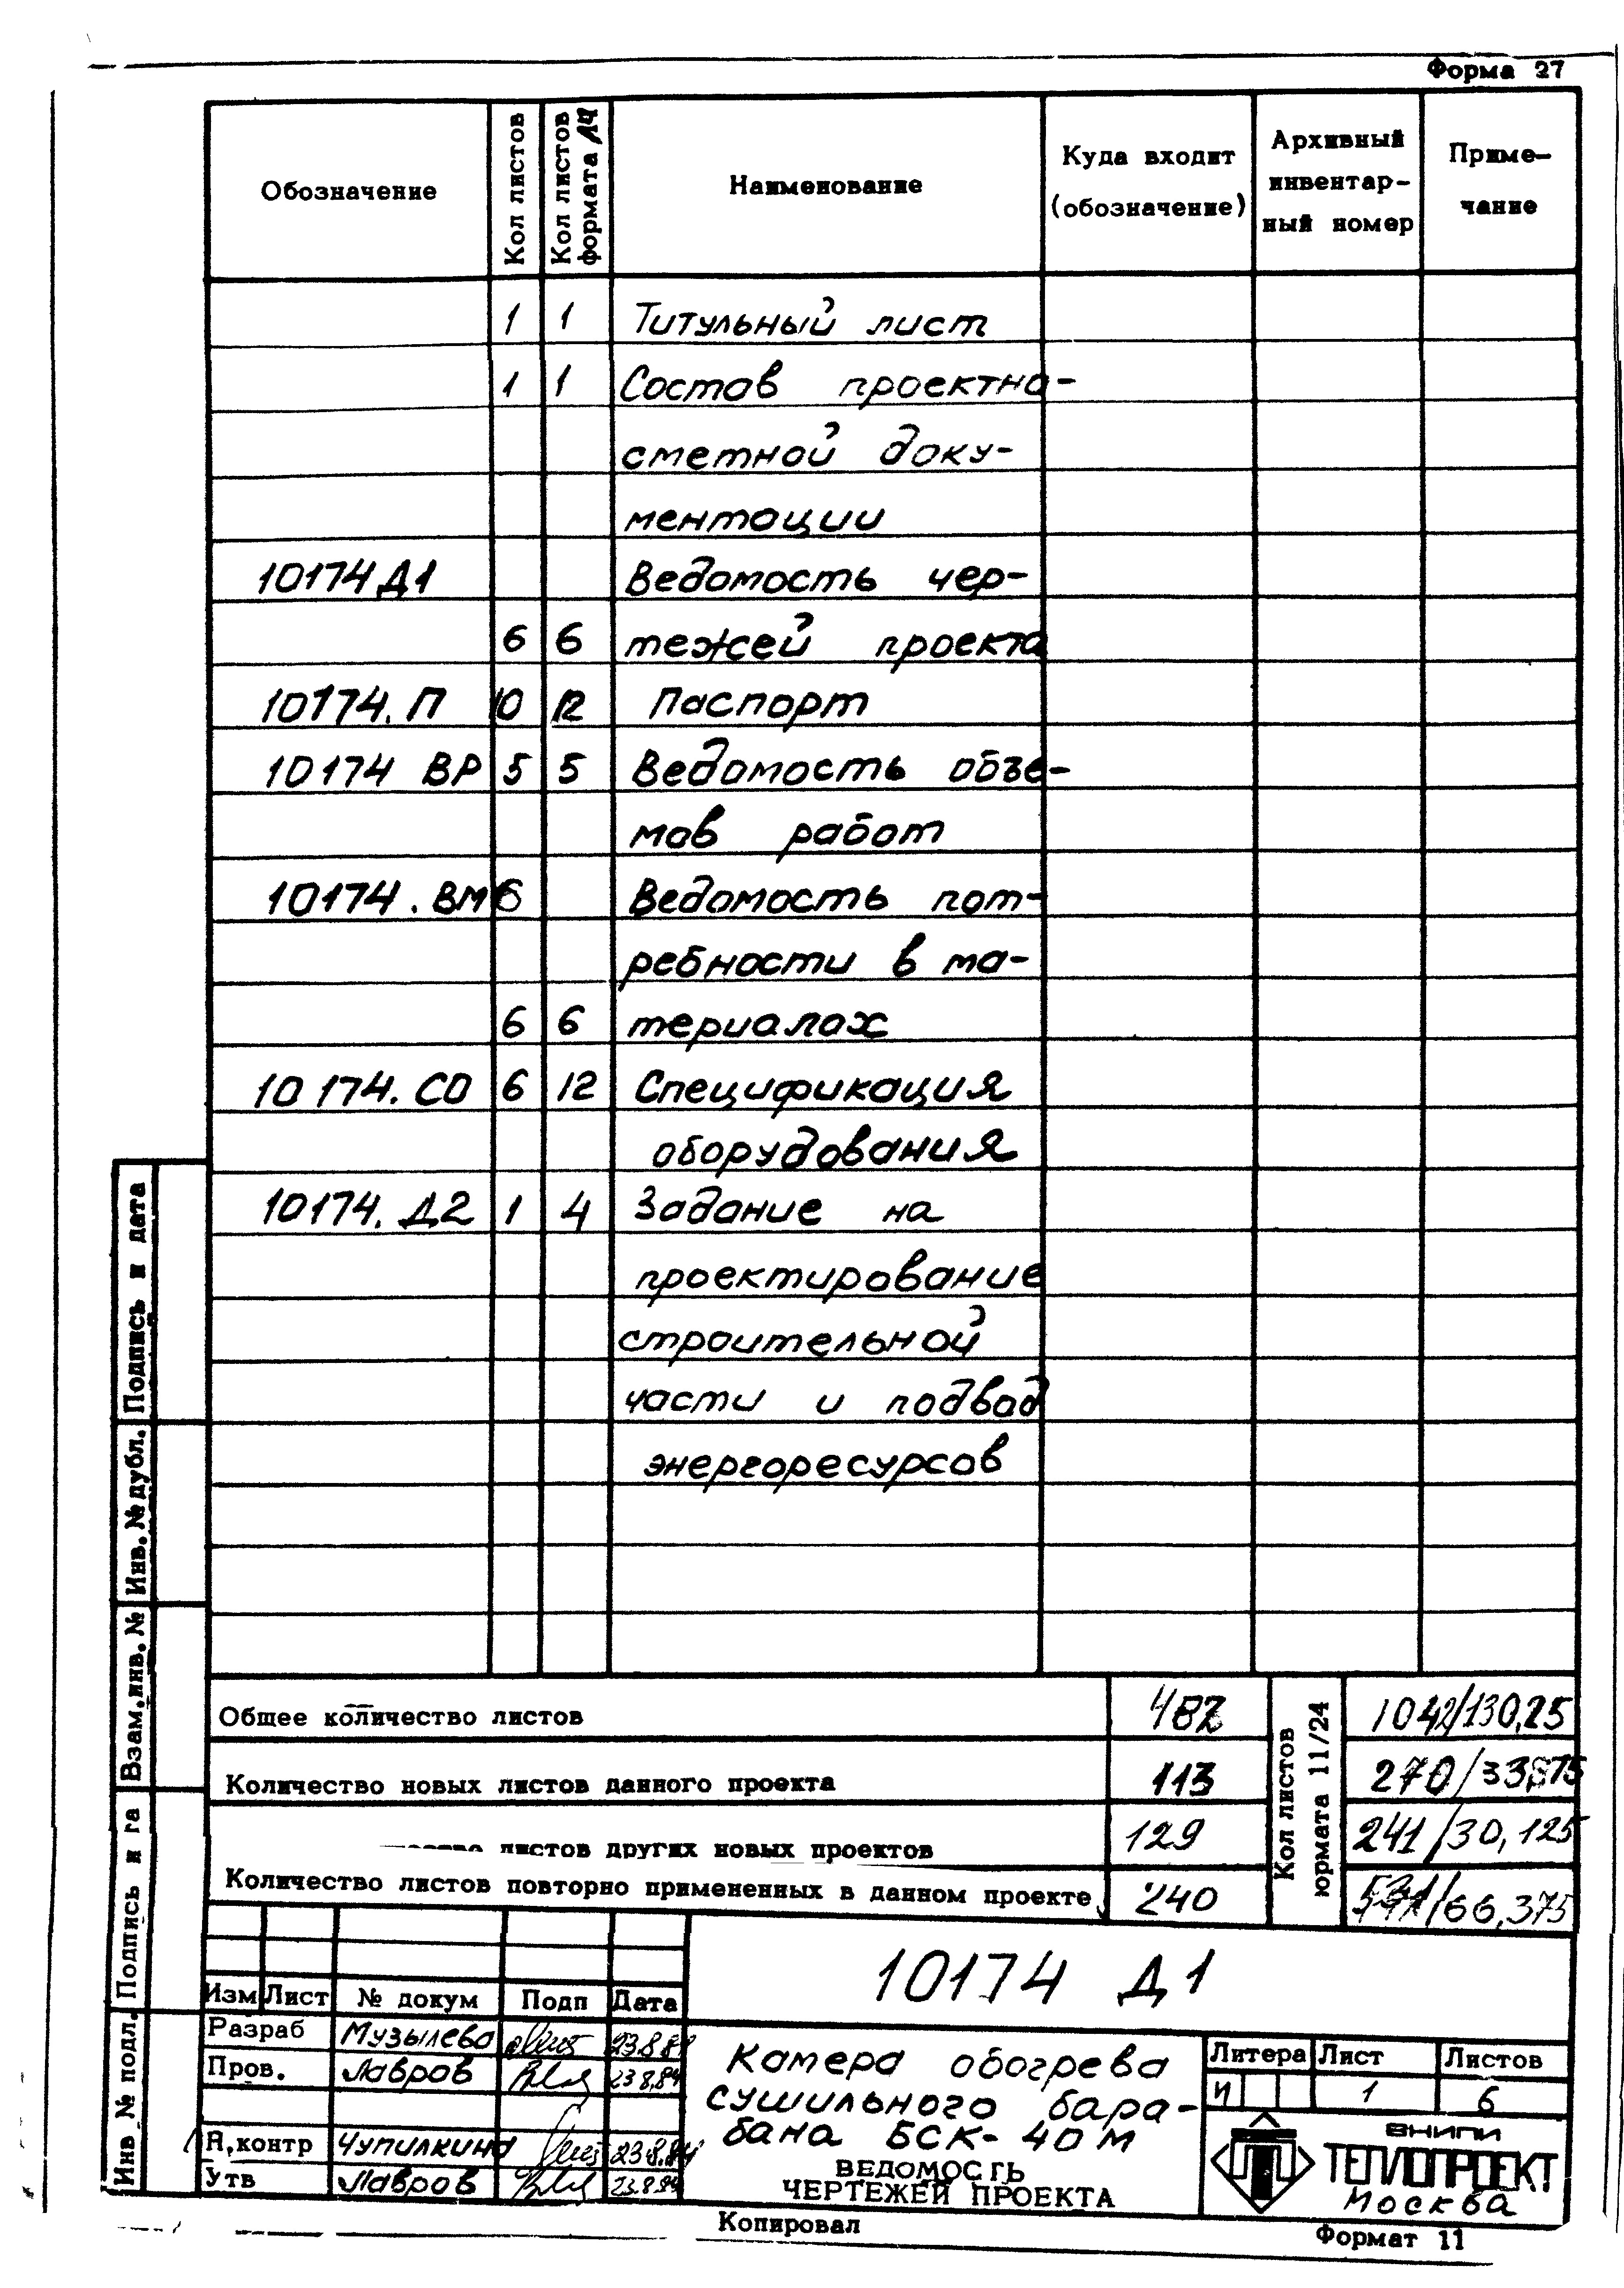 Форма 27
Обозначение
Кол листов
Кол листов формата А4
Наименование
Куда входит (обозначение)
Архивный инвентар-ный номер
Приме-чание
1 1 Титульный лист
1 1 Состав проектно-
сметной доку-
ментации
10174 Д1 Ведомость чер-
6 6 тежей проекта
10174. П 10 12 Паспорт
10174 ВР 5 5 Ведомость объе-
мов работ
10174. ВМ 6 Ведомость пот-
ребности в ма-
6 6 териалах
10174. СО 6 12 Спецификация
оборудования
10174. Д2 1 4 Задание на
проектирование
строительной
части и подвод
энергоресурсов
Общее количество листов 482 1042/130,25
Количество новых листов данного проекта 113 270/33,875
листов других новых проектов 129 241/30,125
Количество листов повторно примененных в данном проекте 240 /66,375
Кол листов
формата 11/24
Подпись и дата
Инв. № дубл.
Взам.инв. №
Подпись и та
Инв № подл.
10174 Д1
Изм Лист № докум Подп Дата
Разраб Музылева 23.8.84
Пров. Лавров 23.8.84
Н.контр Чупилкина 23.8.84
Утв Лавров 23.8.84
Камера обогрева
сушильного бара-
бана БСК-40М
ВЕДОМОСТЬ
ЧЕРТЕЖЕЙ ПРОЕКТА
Литера Лист Листов
И 1 6
ВНИПИ
ТЕПЛОПРОЕКТ
Москва
Копировал
Формат 11